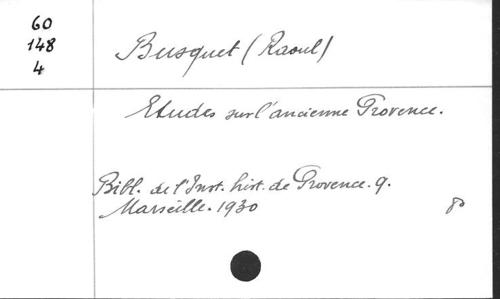 60
148
4
Busquet (Raoul)
Etudes sur l'ancienne Provence.
Bibl. de l'Inst. hist. de Provence. 9.
Marseille. 1930
8°